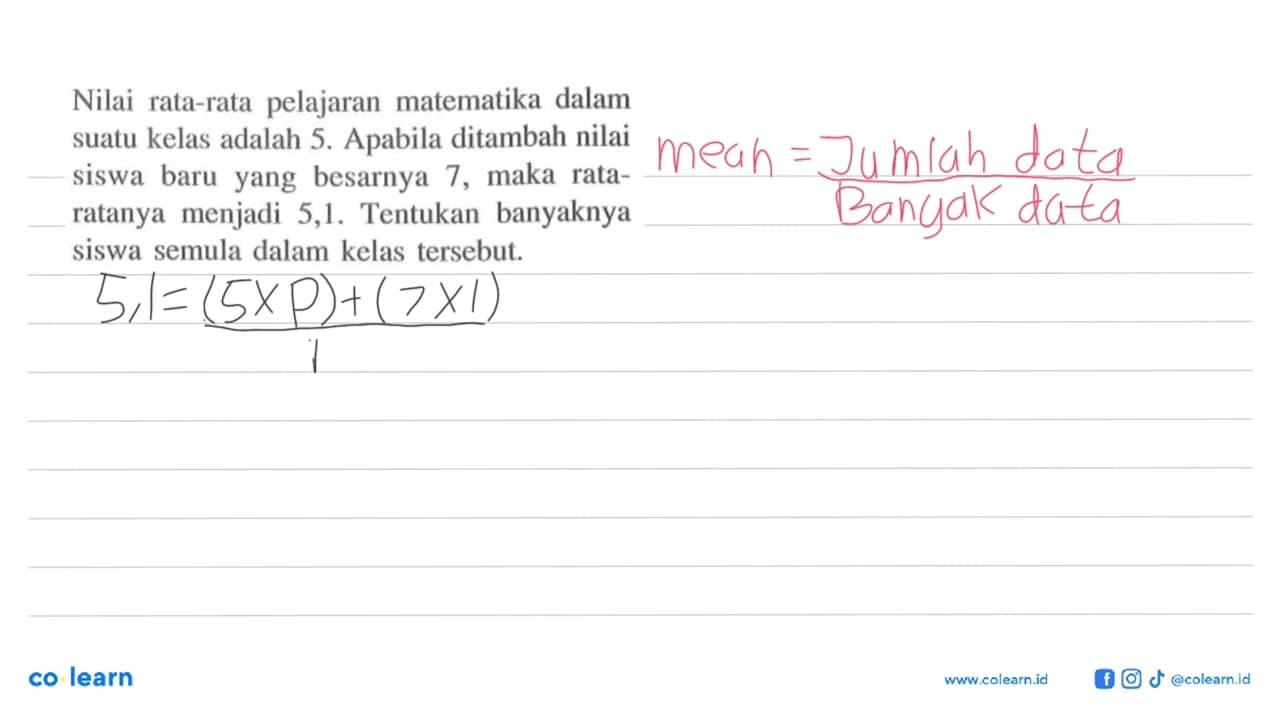 Nilai rata-rata pelajaran matematika dalam
suatu kelas adalah 5. Apabila ditambah nilai
siswa baru yang besarnya 7, maka rata-
ratanya menjadi 5,1. Tentukan banyaknya
siswa semula dalam kelas tersebut.
mean = Jumlah data
Banyak data
5,1 = (5 x p) + (7 x 1)
1
co learn
www.colearn.id
@colearn.id